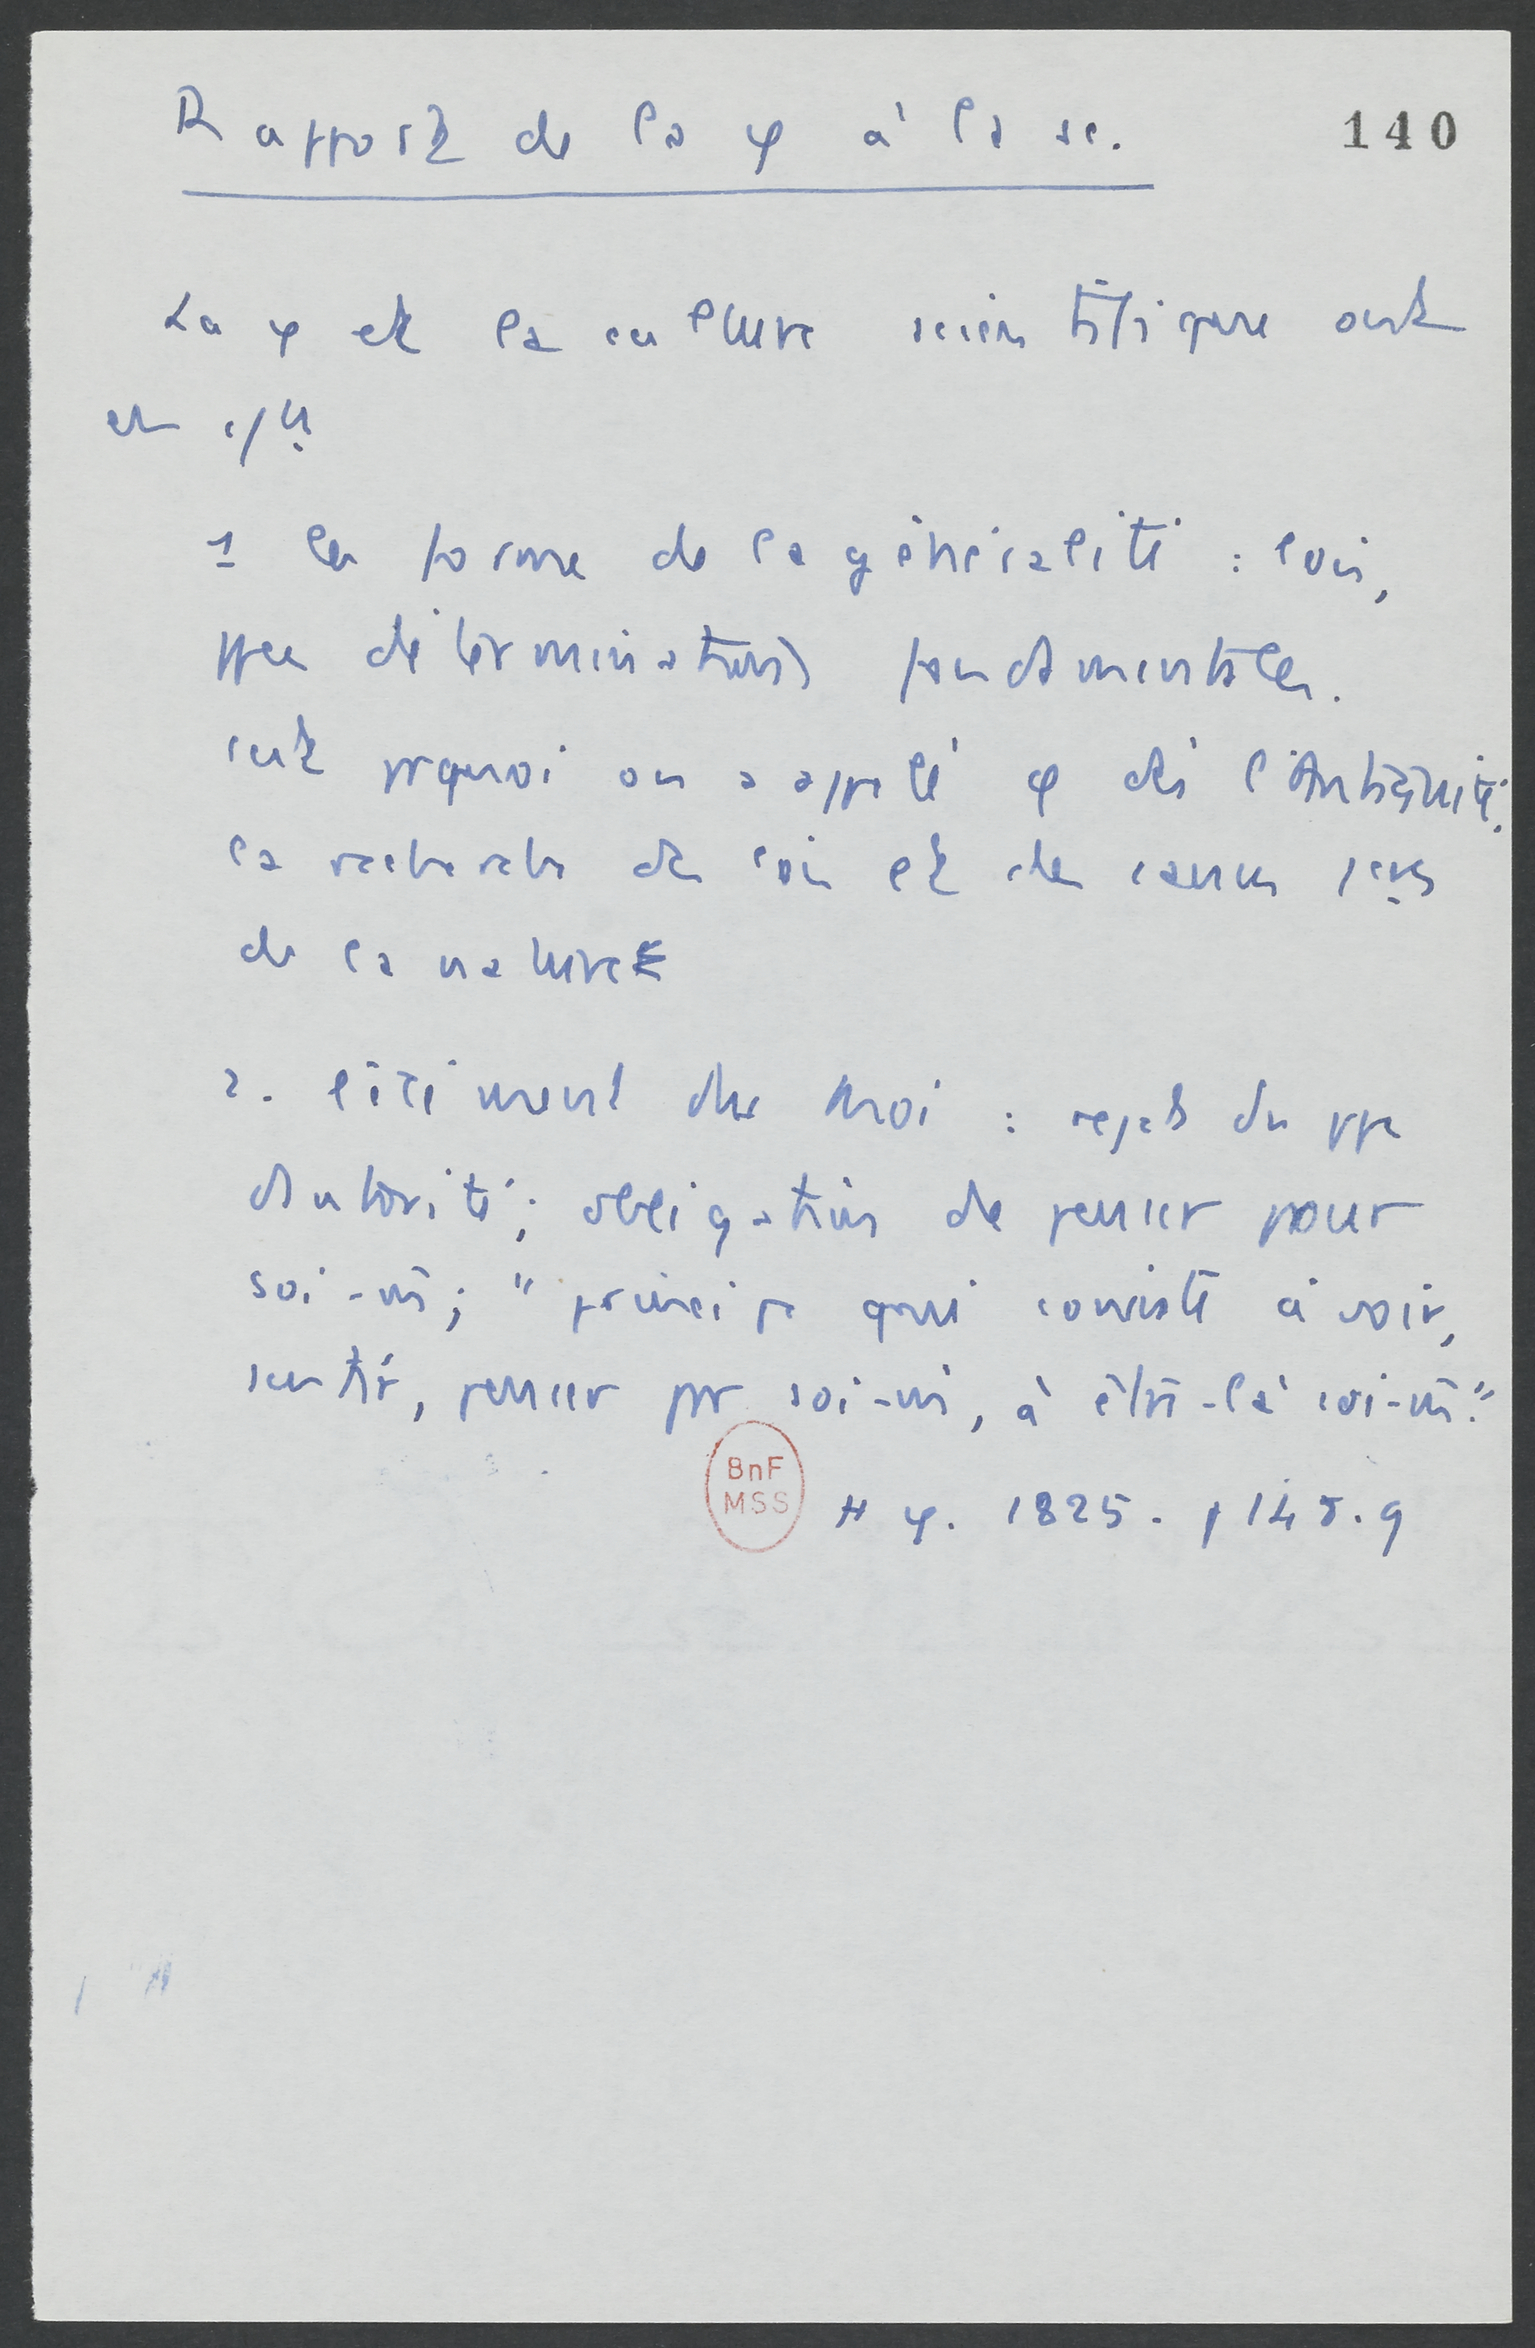 Rapport de la φ à la sc.
140
La φ et la culture scientifique ont
en c/
1 la forme de la généralité : lois,
ppes déterminations fondamentales.
c'est prquoi on a appelé φ dès l'Antiquité
la recherche des lois et des causes
de la nature
2. l'élément du Moi : rejet du ppe
d'autorité ; obligation de penser pour
soi-m̄ ; "principe qui consiste à voir,
sentir, penser pr soi-m̄, à être-là soi-m̄."
BnF
MSS
H φ. 1825. p 148.9